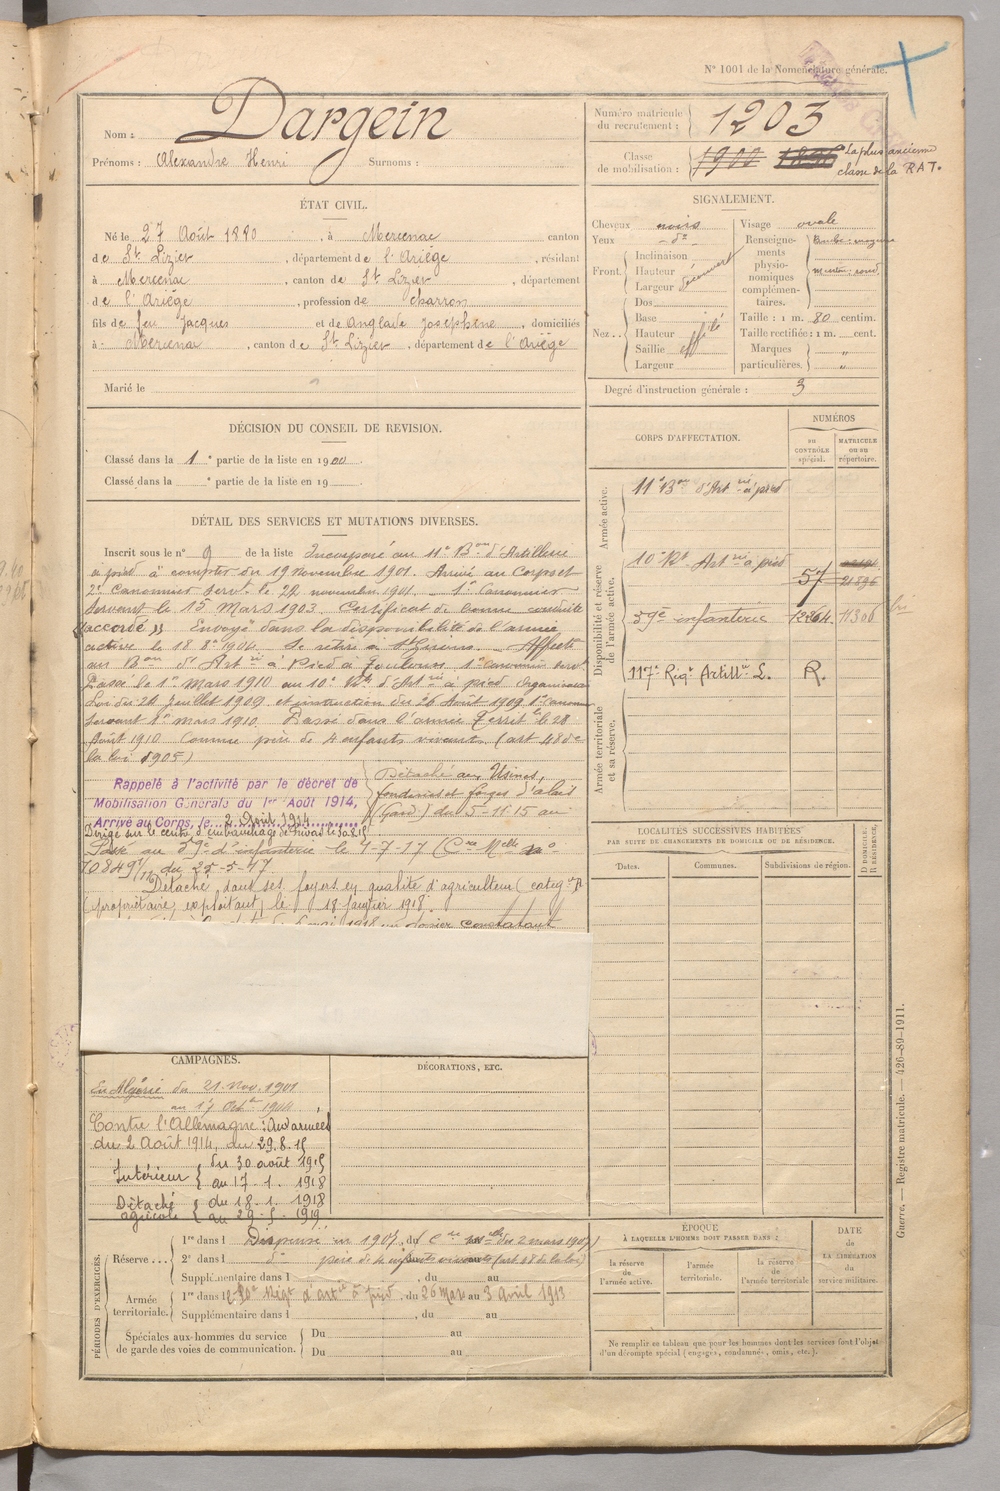 N° 1001 de la Nomenclature générale.
Nom : Dargein
Prénoms : Alexandre Henri Surnoms :
Numéro matricule du recrutement : 1203
Classe de mobilisation : 1900 1896 La plus ancienne classe de la RAT.
ÉTAT CIVIL.
Né le 27 Août 1880, à Mercenac canton
de St Lizier, département de l'Ariège, résidant
à Mercenac, canton de St Lizier, département
de l'Ariège, profession de charron
fils de feu Jacques et de Anglade Joséphine, domiciliés
à Mercenac, canton de St Lizier, département de l'Ariège
Marié le
SIGNALEMENT.
Cheveux noirs
Yeux d°
Front. Inclinaison
Hauteur découvert
Largeur
Nez... Dos
Base
Hauteur effilé
Saillie
Largeur
Visage ovale
Renseignements physionomiques complémentaires. Barbe moyenne
menton rond
Taille : 1 m. 80 centim.
Taille rectifiée : 1 m. cent.
Marques particulières. "
"
Degré d'instruction générale : 3
DÉCISION DU CONSEIL DE REVISION.
Classé dans la 1e partie de la liste en 1900.
Classé dans la e partie de la liste en 19
CORPS D'AFFECTATION.
NUMÉROS
au CONTRÔLE spécial.
MATRICULE ou au répertoire.
Armée active.
11e Bon d'Artrie à pied
Disponibilité et réserve de l'armée active.
10e Rt Artrie à pied 57 21896
59e infanterie 12264 11306
117e Régt Artillie L. R.
Armée territoriale et sa réserve.
DÉTAIL DES SERVICES ET MUTATIONS DIVERSES.
Inscrit sous le n° 9 de la liste Incorporé au 11e Bon d'Artillerie
à pied à compter du 19 novembre 1901. Arrivé au Corps et
2e Canonnier Serv. le 22 novembre 1901. 1er Canonnier
Servant le 15 Mars 1903. Certificat de bonne conduite
"accordé" Envoyé dans la disponibilité de l'armée
active le 18 8bre 1904. Se retire à St Girons. Affecté
au Bon d'Artrie à Pied à Toulouse. 1er Canonnier servt
Passé le 1er Mars 1910 au 10e Rt d'Artrie à pied Organisation
Loi du 24 Juillet 1909 et instruction du 26 Août 1909 1er Canonnier
Servant 1er mars 1910. Passé dans l'armée Territle le 28
Août 1910 Comme père de 4 enfants vivants (art 48 de
la loi 1905)
Rappelé à l'activité par le décret de
Mobilisation Générale du 1er Août 1914,
Arrivé au Corps, le 2 Août 1914
Détaché aux Usines,
fonderies et forges d'alais
(Gard) du 5-11 15 au
Dirigé sur le centre d'embrayage de
Passé au 59e d'infanterie le 4-7-17 (Cre Melle n°
70849 1/11 du 25-5-17
Détaché dans ses foyers en qualité d'agriculteur (catége A
(propriétaire exploitant) le 18 janvier 1918.
mai 1918 un dossier constatant
LOCALITÉS SUCCESSIVES HABITÉES
PAR SUITE DE CHANGEMENTS DE DOMICILE OU DE RÉSIDENCE.
Dates.
Communes.
Subdivisions de région.
D. DOMICILE, R. RÉSIDENCE.
CAMPAGNES.
En Algérie du 21 Nov. 1901
au 17 Octbre 1904
Contre l'Allemagne : Aux armées
du 2 Août 1914, au 29.8.15
Intérieur du 30 août 1915
au 17. 1. 1918
Détaché agricole du 18. 1. 1918
au 29. 5. 1919
DÉCORATIONS, ETC.
PÉRIODES D'EXERCICES.
Réserve... 1re dans l Dispensé en 1907, du Cre Melle du 2 mars 1907
2e dans l d° père de enfants vivants (art 48 de la loi)
Supplémentaire dans l , du au
Armée territoriale. 1re dans l e 10e Régt d'artie à pied, du 26 Mars au 3 Avril 1913
Supplémentaire dans l , du au
Spéciales aux hommes du service de garde des voies de communication. Du au
Du au
ÉPOQUE
À LAQUELLE L'HOMME DOIT PASSER DANS :
la réserve de l'armée active.
l'armée territoriale.
la réserve de l'armée territoriale
DATE
de
LA LIBÉRATION
du
service militaire.
Ne remplir ce tableau que pour les hommes dont les services font l'objet
d'un décompte spécial (engagés, condamnés, omis, etc.).
Guerre. — Registre matricule. — 426-89-1911.